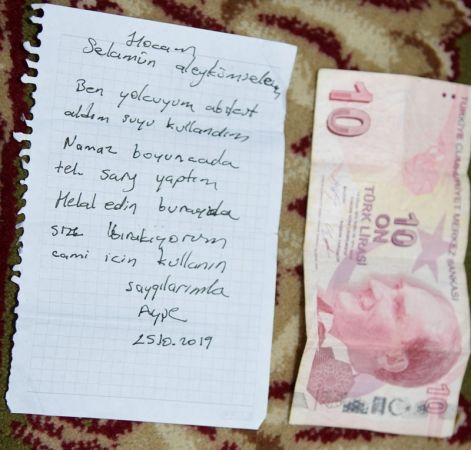 Hocam
Selamün aleykümselam
Ben yolcuyum abdest
aldım suyu kullandım
Namaz boyuncada
tek şarj yaptım
Helal edin burayıda
size bırakıyorum
cami için kullanın
saygılarımla
Ayşe
25.10.2019
10
TÜRK LİRASI
ON
10
TÜRKİYE CUMHURİYET MERKEZ BANKASI
10